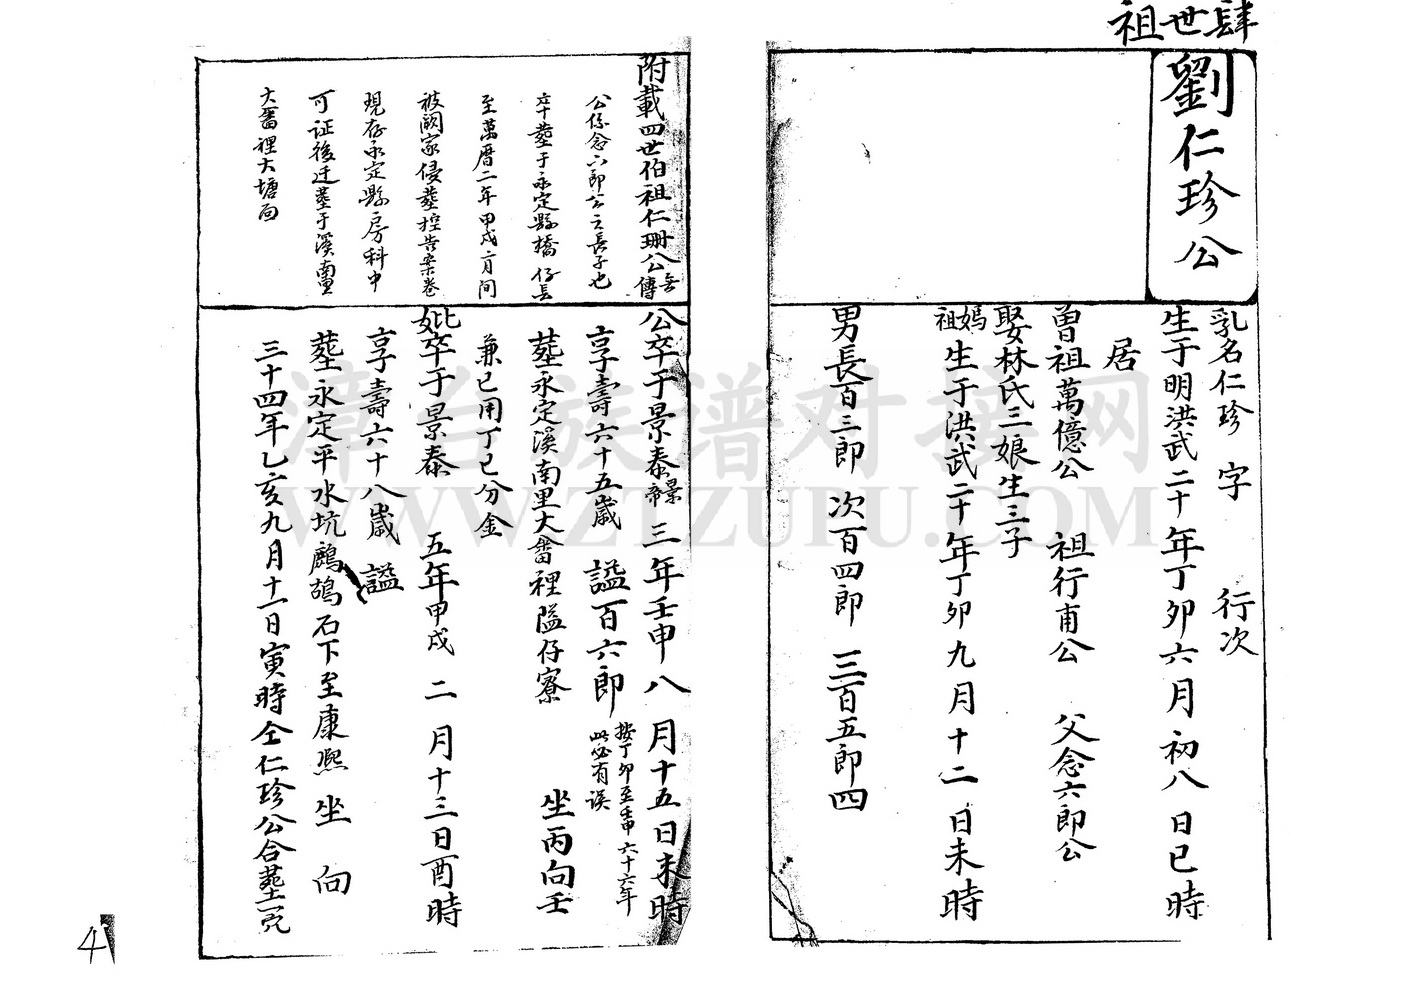 肆世祖
劉仁珍公
乳名仁珍 字 行次
生于明洪武二十年丁卯六月初八日巳時
居
曾祖萬億公 祖行甫公 父念六郎公
娶林氏三娘生三子
祖媽生于洪武二十年丁卯九月十二日未時
男長百三郎 次百四郎 三百五郎四
附載四世伯祖仁珊公傳
公係念六郎公之長子也
卒葬于永定縣橋仔
至萬曆二年甲戌二月間
被闕家侵葬控告案卷
現存永定縣房科中
可证後迁葬于溪南里
大畨裡大塘面
公卒于景泰景帝三年壬申八月十五日未時
享壽六十五歲 諡百六郎 按丁卯至壬申六十六年
此必有误
葬永定溪南里大畨裡隘仔寮 坐丙向壬
兼巳用丁巳分金
妣卒于景泰 五年甲戌 二月十三日酉時
享壽六十八歲 諡
葬永定平水坑鷓鴣石下至康熙 坐 向
三十四年乙亥九月十一日寅時仝仁珍公合葬一穴
4
漳台族谱对接网
WWW.ZTZUPU.COM